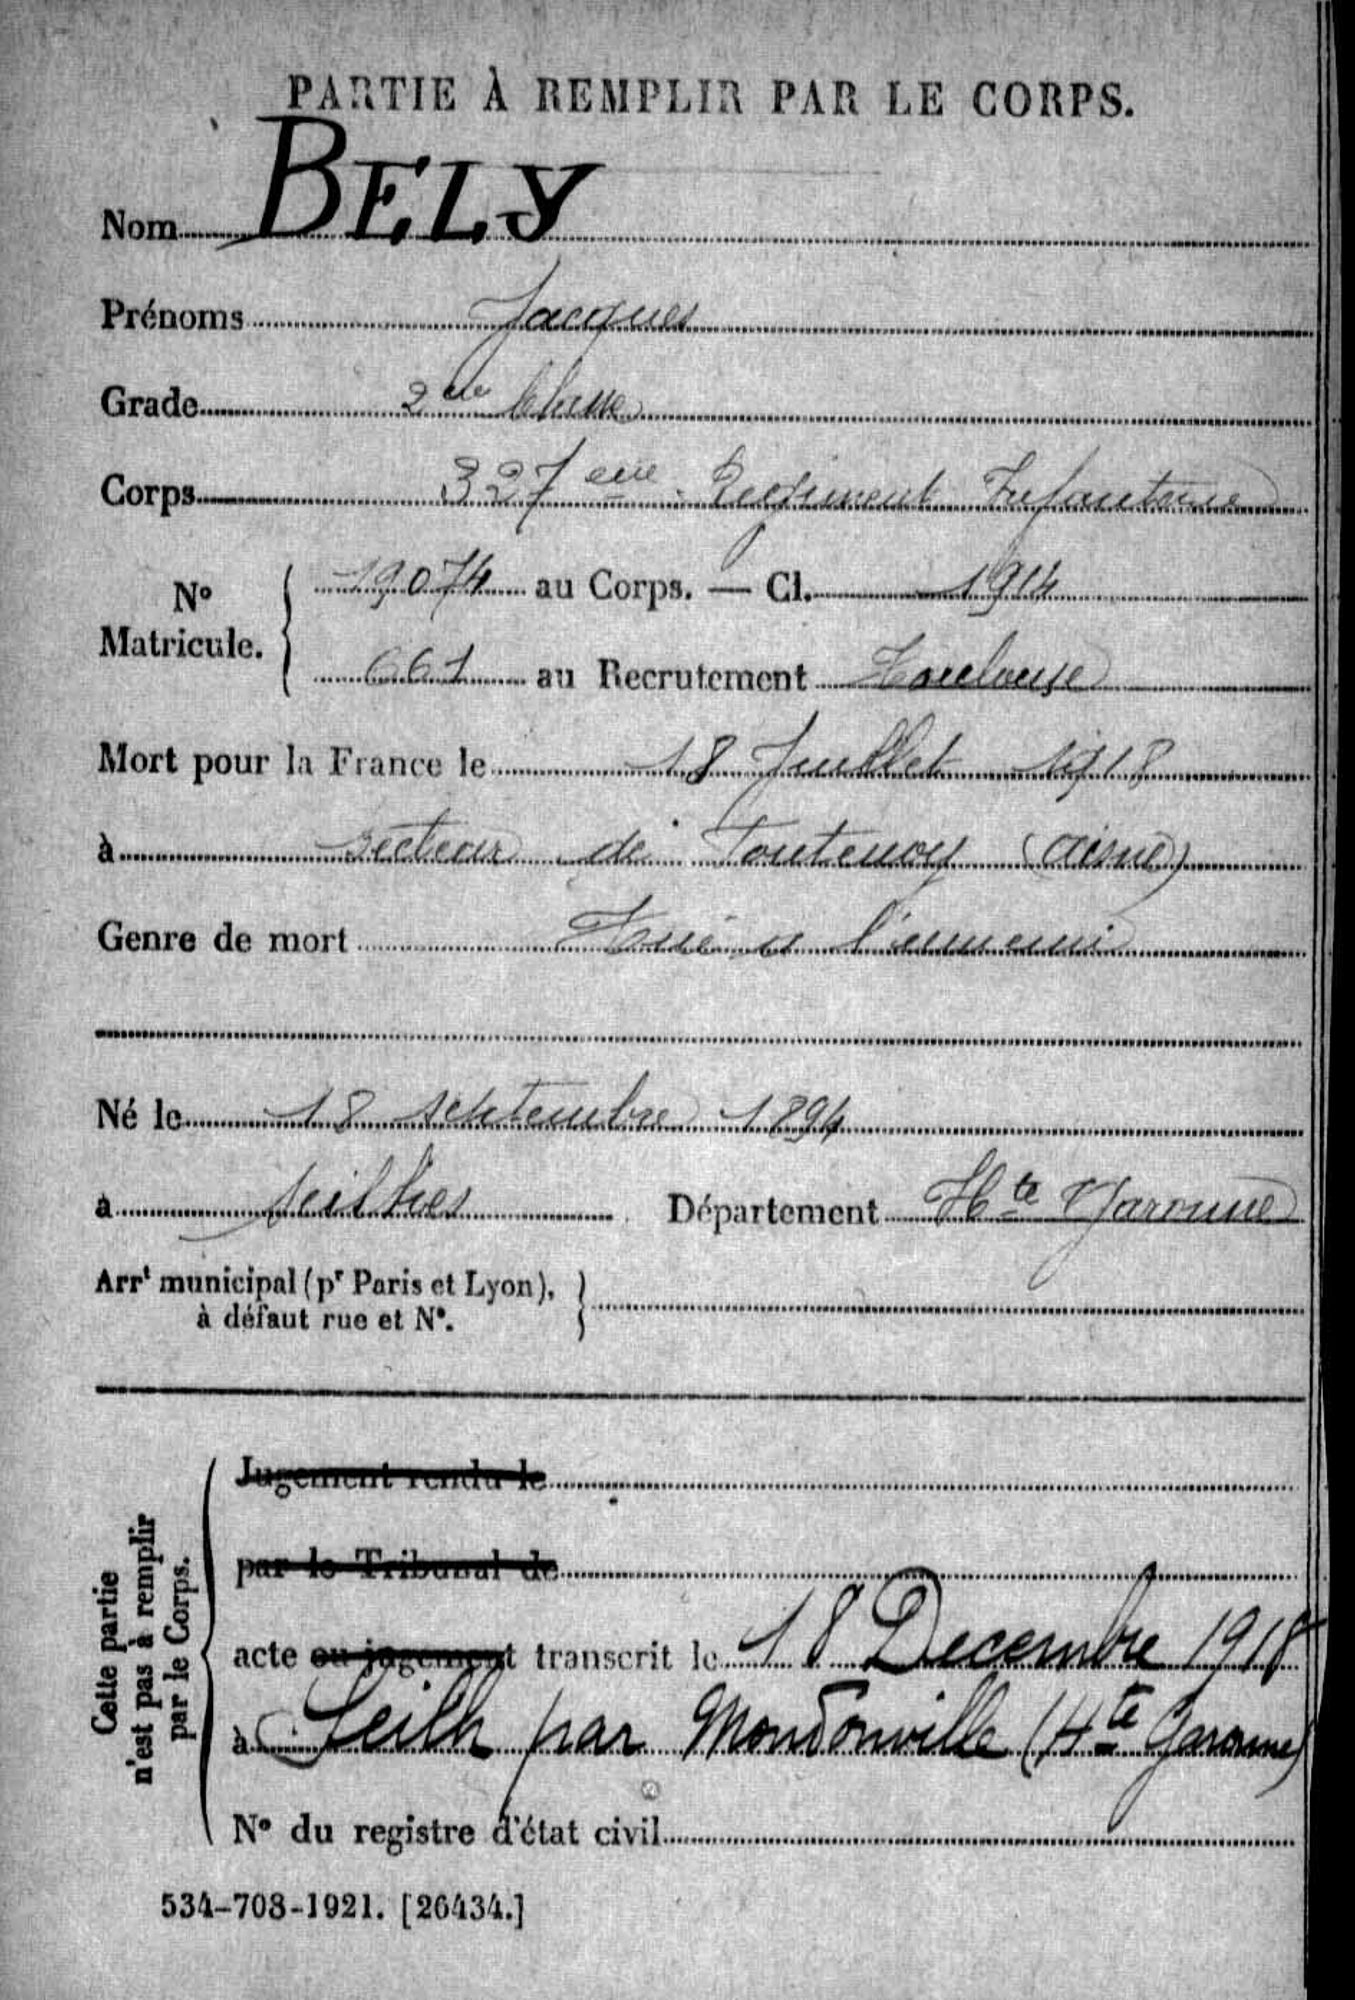 PARTIE À REMPLIR PAR LE CORPS.
Nom BELY
Prénoms Jacques
Grade 2me Classe
Corps 327eme Regiment Infanterie
No Matricule. 19074 au Corps. — Cl. 1914
661 au Recrutement Toulouse
Mort pour la France le 18 Juillet 1918
à secteur de Foutenoy (Aisne)
Genre de mort Tué a l'ennemi
Né le 18 septembre 1894
à Département Hte Garonne
Arrt municipal (pr Paris et Lyon),
à défaut rue et No.
Cette partie
n'est pas à remplir
par le Corps.
Jugement rendu le
par le Tribunal de
acte ou jugement transcrit le 18 Decembre 1918
à Seilh par Mondonville (Hte Garonne)
No du registre d'état civil
534-708-1921. [26434.]